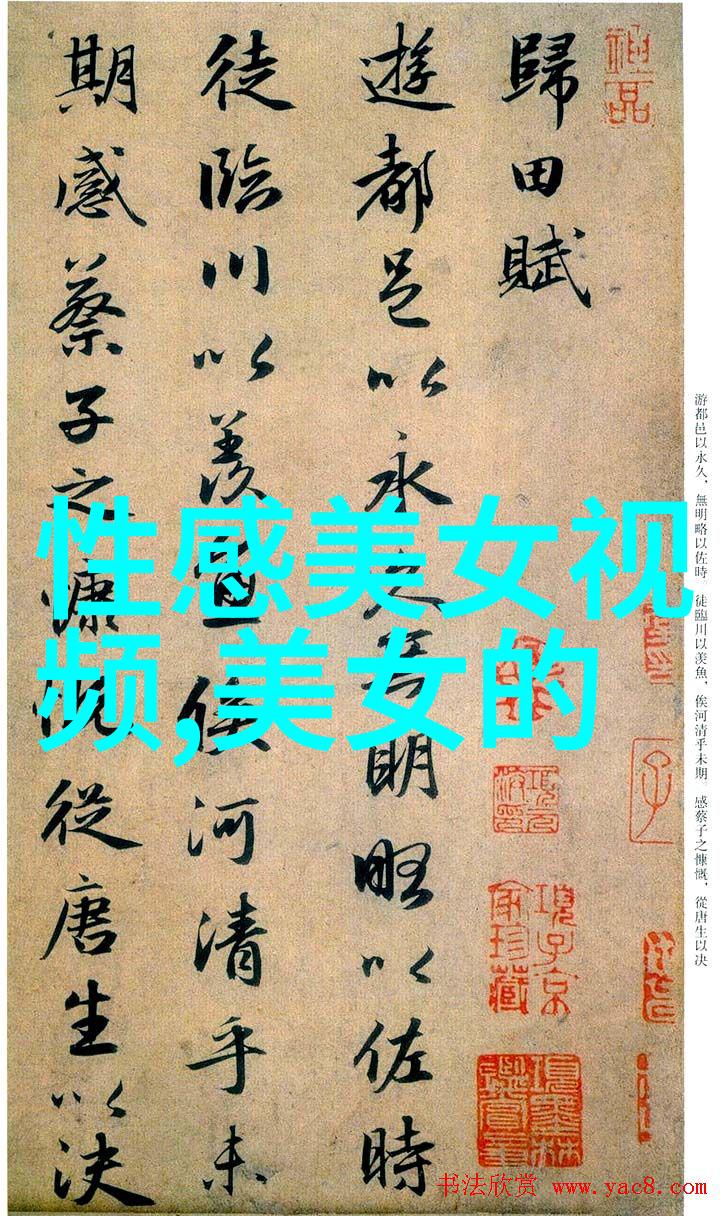 歸田賦
遊都邑以永久無明略以佐時
徒臨川以羡魚俟河清乎未
期感蔡子之慷慨從唐生以决
性感美女视
频,美女的
游都邑以永久,無明略以佐時。徒臨川以羡魚,俟河清乎未期。感蔡子之慷慨,從唐生以决
項子京
家珍藏
书法欣赏 www.yac8.com